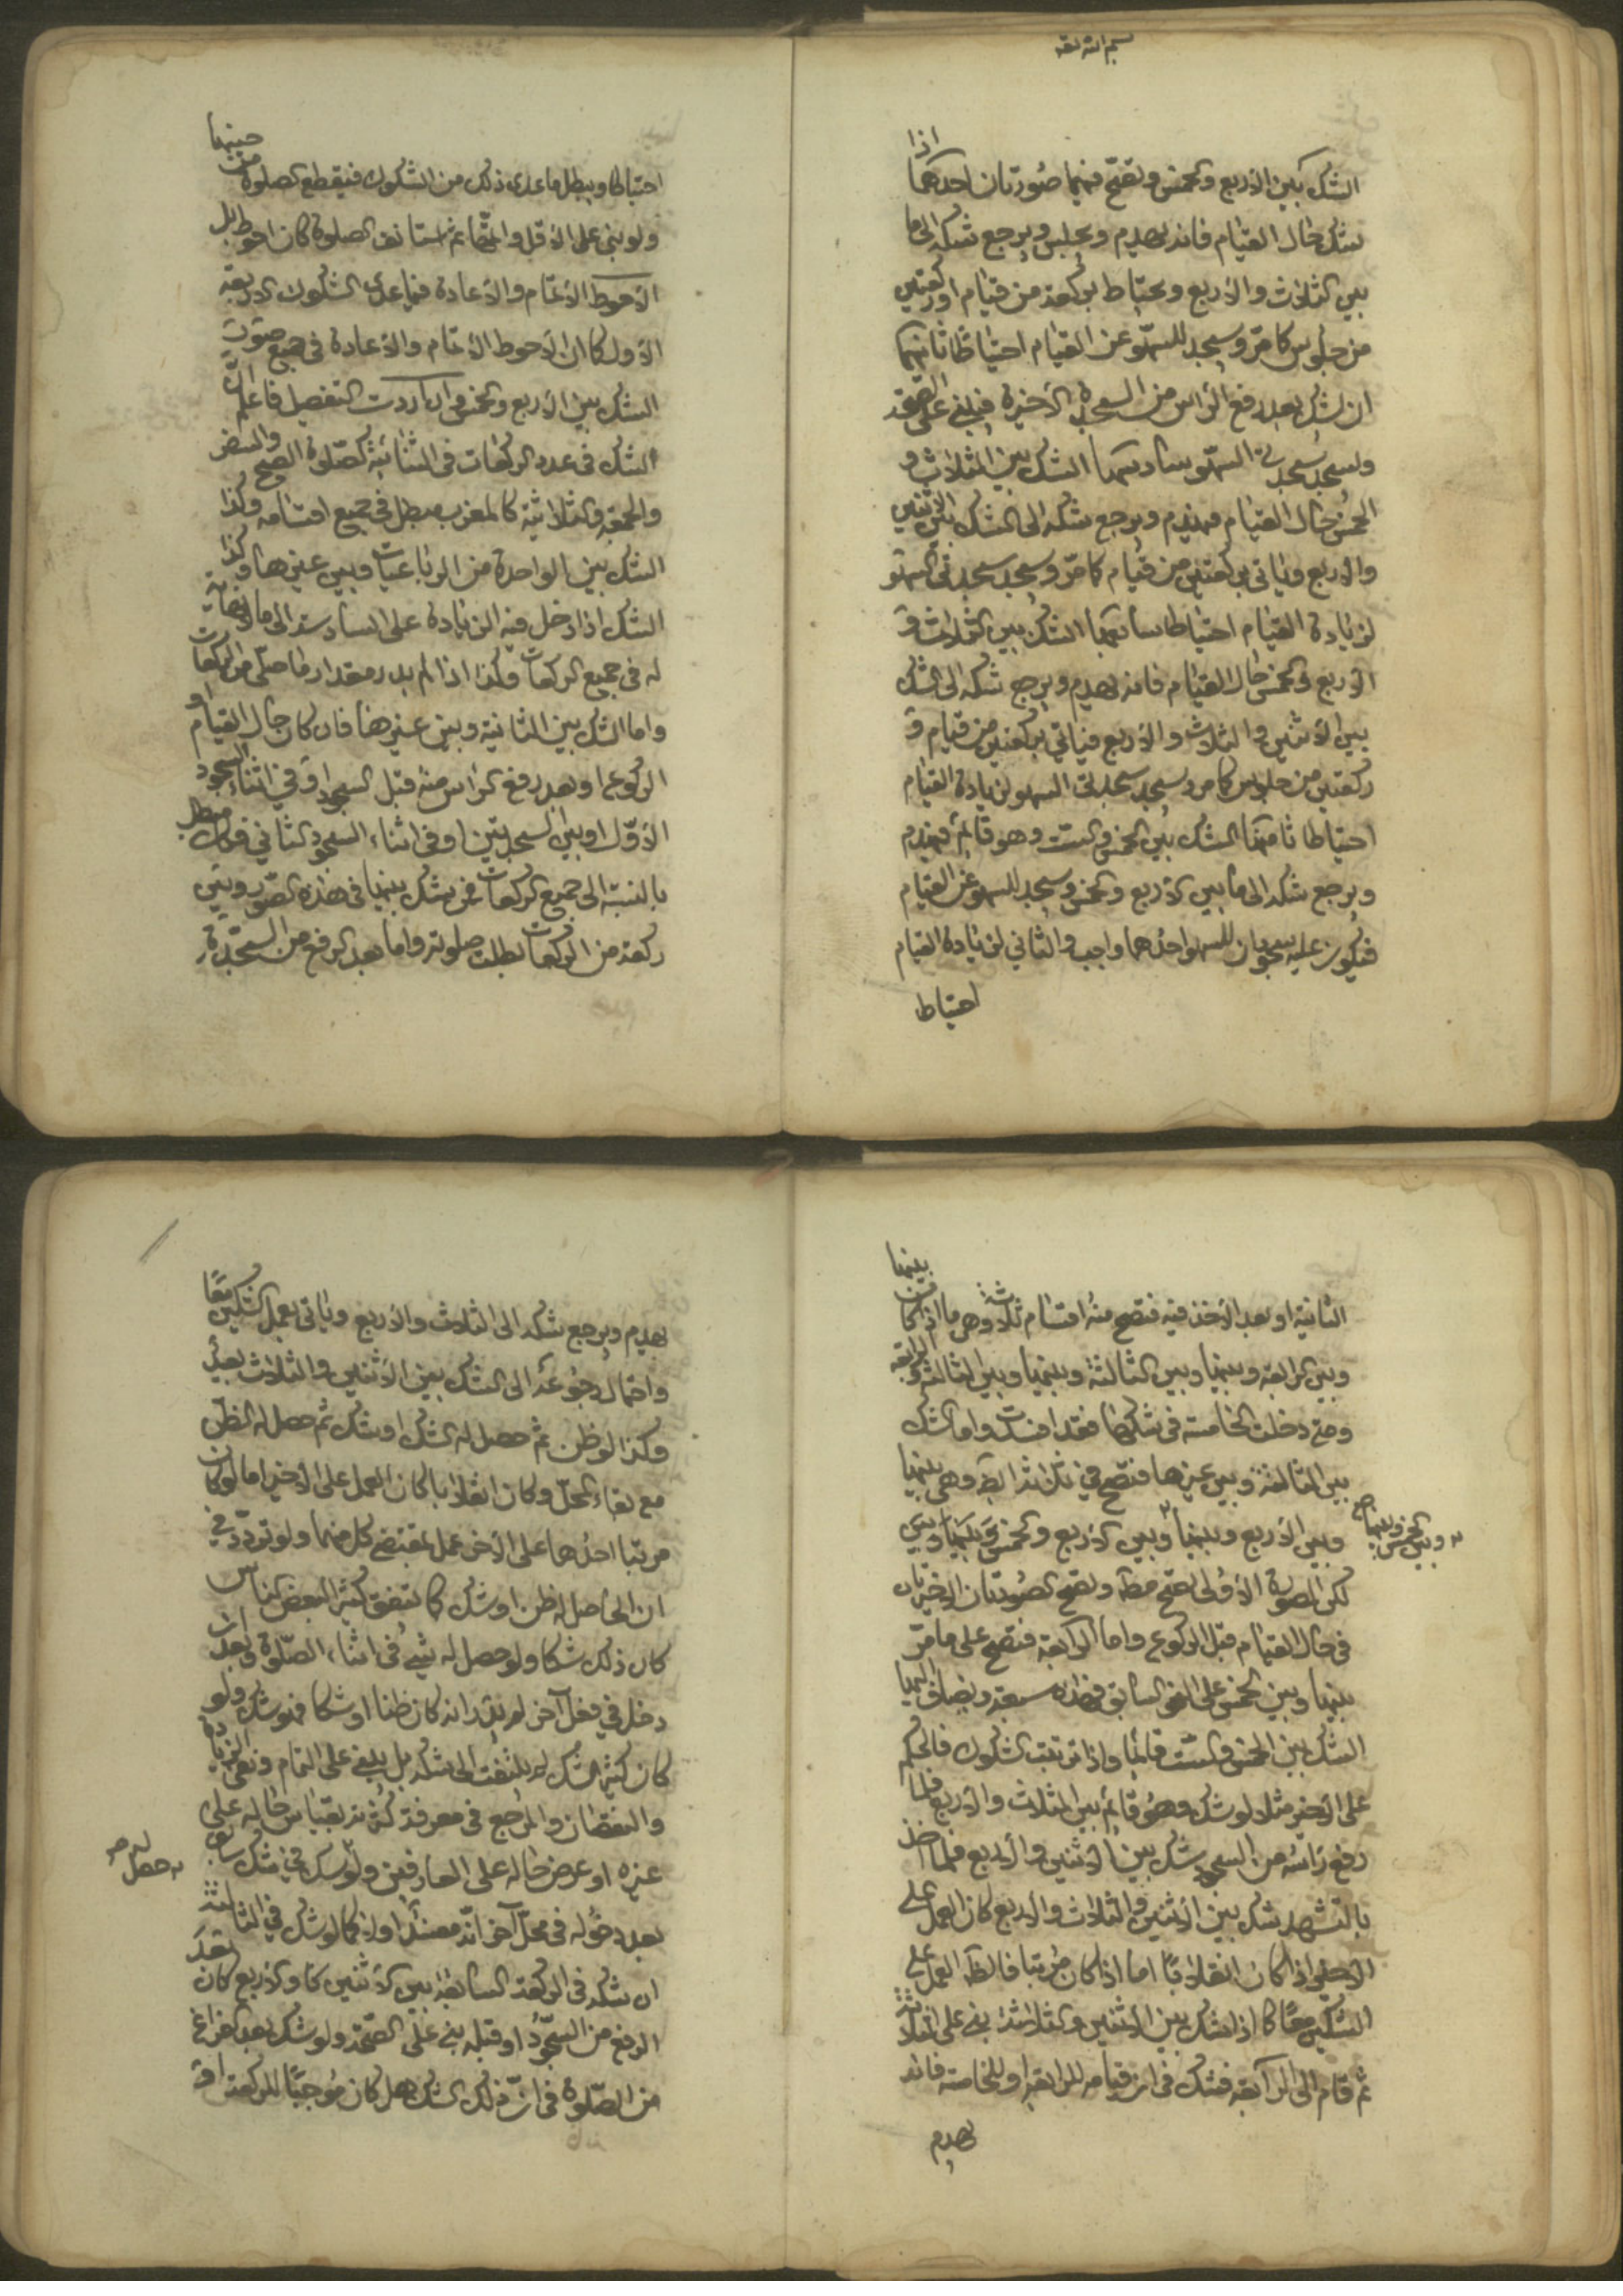 بسم الله تعه
اذا
الشك بين الاربع والخمس وتصح فيهما صورتان احدهما
شك حال القيام فانه يهدم ويجلس ويرجع شكه الى ما
بين الثلاث والاربع ويحتاط بركعة من قيام او ركعتين
من جلوس كما مرّ ويسجد للسهو عن القيام احتياطا ثانيهما
ان شك بعد رفع الراس من السجدة الاخيرة فيبني على الصحة
ويسجد سجدتي السهو سادسها الشك بين الثلاث و
الخمس حال القيام فيهدم ويرجع شكه الى الشك بين الاثنين
والاربع وياتي بركعتين من قيام كما مرّ ويسجد سجدتي السهو
لزيادة القيام احتياطا سابعها الشك بين الثلاث و
الاربع والخمس حال القيام فانه يهدم ويرجع شكه الى الشك
بين الاثنين والثلاث والاربع فياتي بركعتين من قيام و
ركعتين من جلوس كما مر ويسجد سجدتي السهو لزيادة القيام
احتياطا ثامنها الشك بين الخمس والست وهو قائم فيهدم
ويرجع شكه الى ما بين الاربع والخمس ويسجد للسهو عن القيام
فيكون عليه سجودان للسهو احدهما واجب والثاني لزيادة القيام
احتياط
احتياطا ويبطل ما عدى ذلك من الشكوك فيقطع الصلوة من حينها
ولو بنى على الاقل واتمّها ثم استانف الصلوة كان احوط بل
الاحوط الاتمام والاعادة فيما عدى الشكوك الاربعة
الاول كما ان الاحوط الاتمام والاعادة في جميع صور
الشك بين الاربع والخمس وان اردت التفصيل فاعلم انّ
الشك في عدد الركعات في الثنائية كصلوة الصبح والسفر
والجمعة والثلاثية كالمغرب مبطل في جميع اقسامه وكذا
الشك بين الواحدة من الرباعيات وبين غيرها وكذا
الشك اذا دخل فيه الزيادة على السادسة الى ما لا نهاية
له في جميع الركعات وكذا اذا لم يدر مقدار ما صلّى من الركعات
واما الشك بين الثانية وبين غيرها فان كان حال القيام او
الركوع او بعد رفع الراس منه قبل السجود او في اثناء السجود
الاوّل او بين السجدتين او في اثناء السجود الثاني فهو مبطل
بالنسبة الى جميع الركعات فمن شك بينها في هذه الصور وبين
ركعة من الركعات بطلت صلوته واما بعد الرفع من السجدة
الثانية او بعد الاخذ فيه فتصح منه اقسام ثلثة وهي ما اذا كانت بينها
وبين الرابعة وبينها وبين الثالثة وبينها وبين الثالثة والرابعة
ومتى دخلت الخامسة في شكها فقد افسدت واما الشك
بين الثالثة وبين غيرها فتصح في ثلثة ايضا وهي بينها
وبين الاربع وبينها وبين الاربع والخمس وبينها وبين
وبين الخمس وبينها صح
لكن الصورة الاولى تصح مطلقا وتصح الصورتان الاخيرتان
في حال القيام قبل الركوع واما الرابعة فتصح على ما مرّ
بينها وبين الخمس على النحو السابق فهذه سبعة ويضاف اليها
الشك بين الخمس والست قائما واذا ترتبت الشكوك فالحكم
على الاخير مثلا لو شك وهو قائم بين الثلاث والاربع فلما
رفع راسه من السجود شك بين الاثنين والاربع فلما اخذ
بالتشهد شك بين الاثنين والثلاث والاربع كان العمل على
الاخير اذا كان انقلابا اما اذا كان مرتبا فالظ العمل على
الشكين معا كما اذا شك بين الاثنين والثلاثة بنى على الثلاثة
ثم قام الى الرابعة فشك في ان قيامه للرابعة او للخامسة فانه
يهدم
يهدم ويرجع شكه الى الثلاث والاربع وياتي بعمل الشكين معا
واحتمال رجوعه الى الشك بين الاثنين والثلاث بعيد
وكذا لو ظن ثم حصل له الشك او شك ثم حصل له الظن
مع بقاء المحل وكان انقلابا كان العمل على الاخير اما لو كان
مرتبا احدهما على الاخر عمل بمقتضى كل منهما ولو تردّد في
ان الحاصل له ظن او شك كما يتفق كثيرا لبعض الناس
كان ذلك شكا ولو حصل له شيء في اثناء الصلوة وبعد ان
دخل في فعل آخر لم يدر انه كان ظنا او شكا فهو شك ولو
كان كثير الشك لم يلتفت الى شكه بل يبني على التمام ونفي الزيادة
والنقصان والمرجع في معرفة كثرته بقياس حاله على
غيره او عرض حاله على العارفين ولو شك في شك سابق
له حصل صح
بعد دخوله في محل آخر انّه مفسد او لا كما لو شك في الثالثة
ان شكه في الركعة السابقة بين الاثنين والاربع كان بعد
الرفع من السجود او قبله بنى على الصحة ولو شك بعد الفراغ
من الصلوة في انّ ذلك الشك هل كان موجبا للركعة او